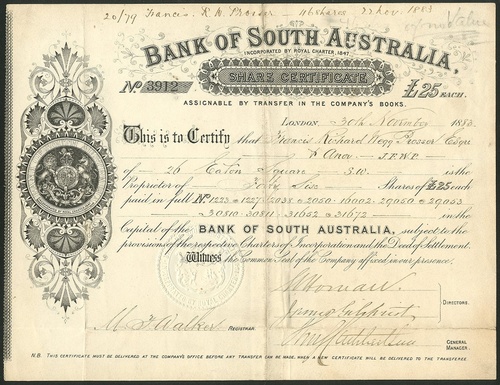 20/79 Francis R. W. Prosser 46 shares 22 Nov. 1883
BANK OF SOUTH AUSTRALIA,
INCORPORATED BY ROYAL CHARTER, 1847.
No. 3912
SHARE CERTIFICATE
£25 EACH.
ASSIGNABLE BY TRANSFER IN THE COMPANY'S BOOKS.
LONDON, 30th November 1883.
This is to Certify that Francis Richard Wegg Prosser Esqre
& Anor — J.P.W.P.
of 26 Eaton Square S.W. is the
Proprietor of Forty Six Shares of £25 each
paid in full No. 1223 1227 2038 2050 16002 29050 29053
30810 30811 31652 31672 in the
Capital of the BANK OF SOUTH AUSTRALIA, subject to the
provisions of the respective Charters of Incorporation and the Deed of Settlement.
Witness the Common Seal of the Company affixed in our presence.
DIRECTORS.
M. J. Walker REGISTRAR.
GENERAL MANAGER.
N.B. THIS CERTIFICATE MUST BE DELIVERED AT THE COMPANY'S OFFICE BEFORE ANY TRANSFER CAN BE MADE, WHEN A NEW CERTIFICATE WILL BE DELIVERED TO THE TRANSFEREE.